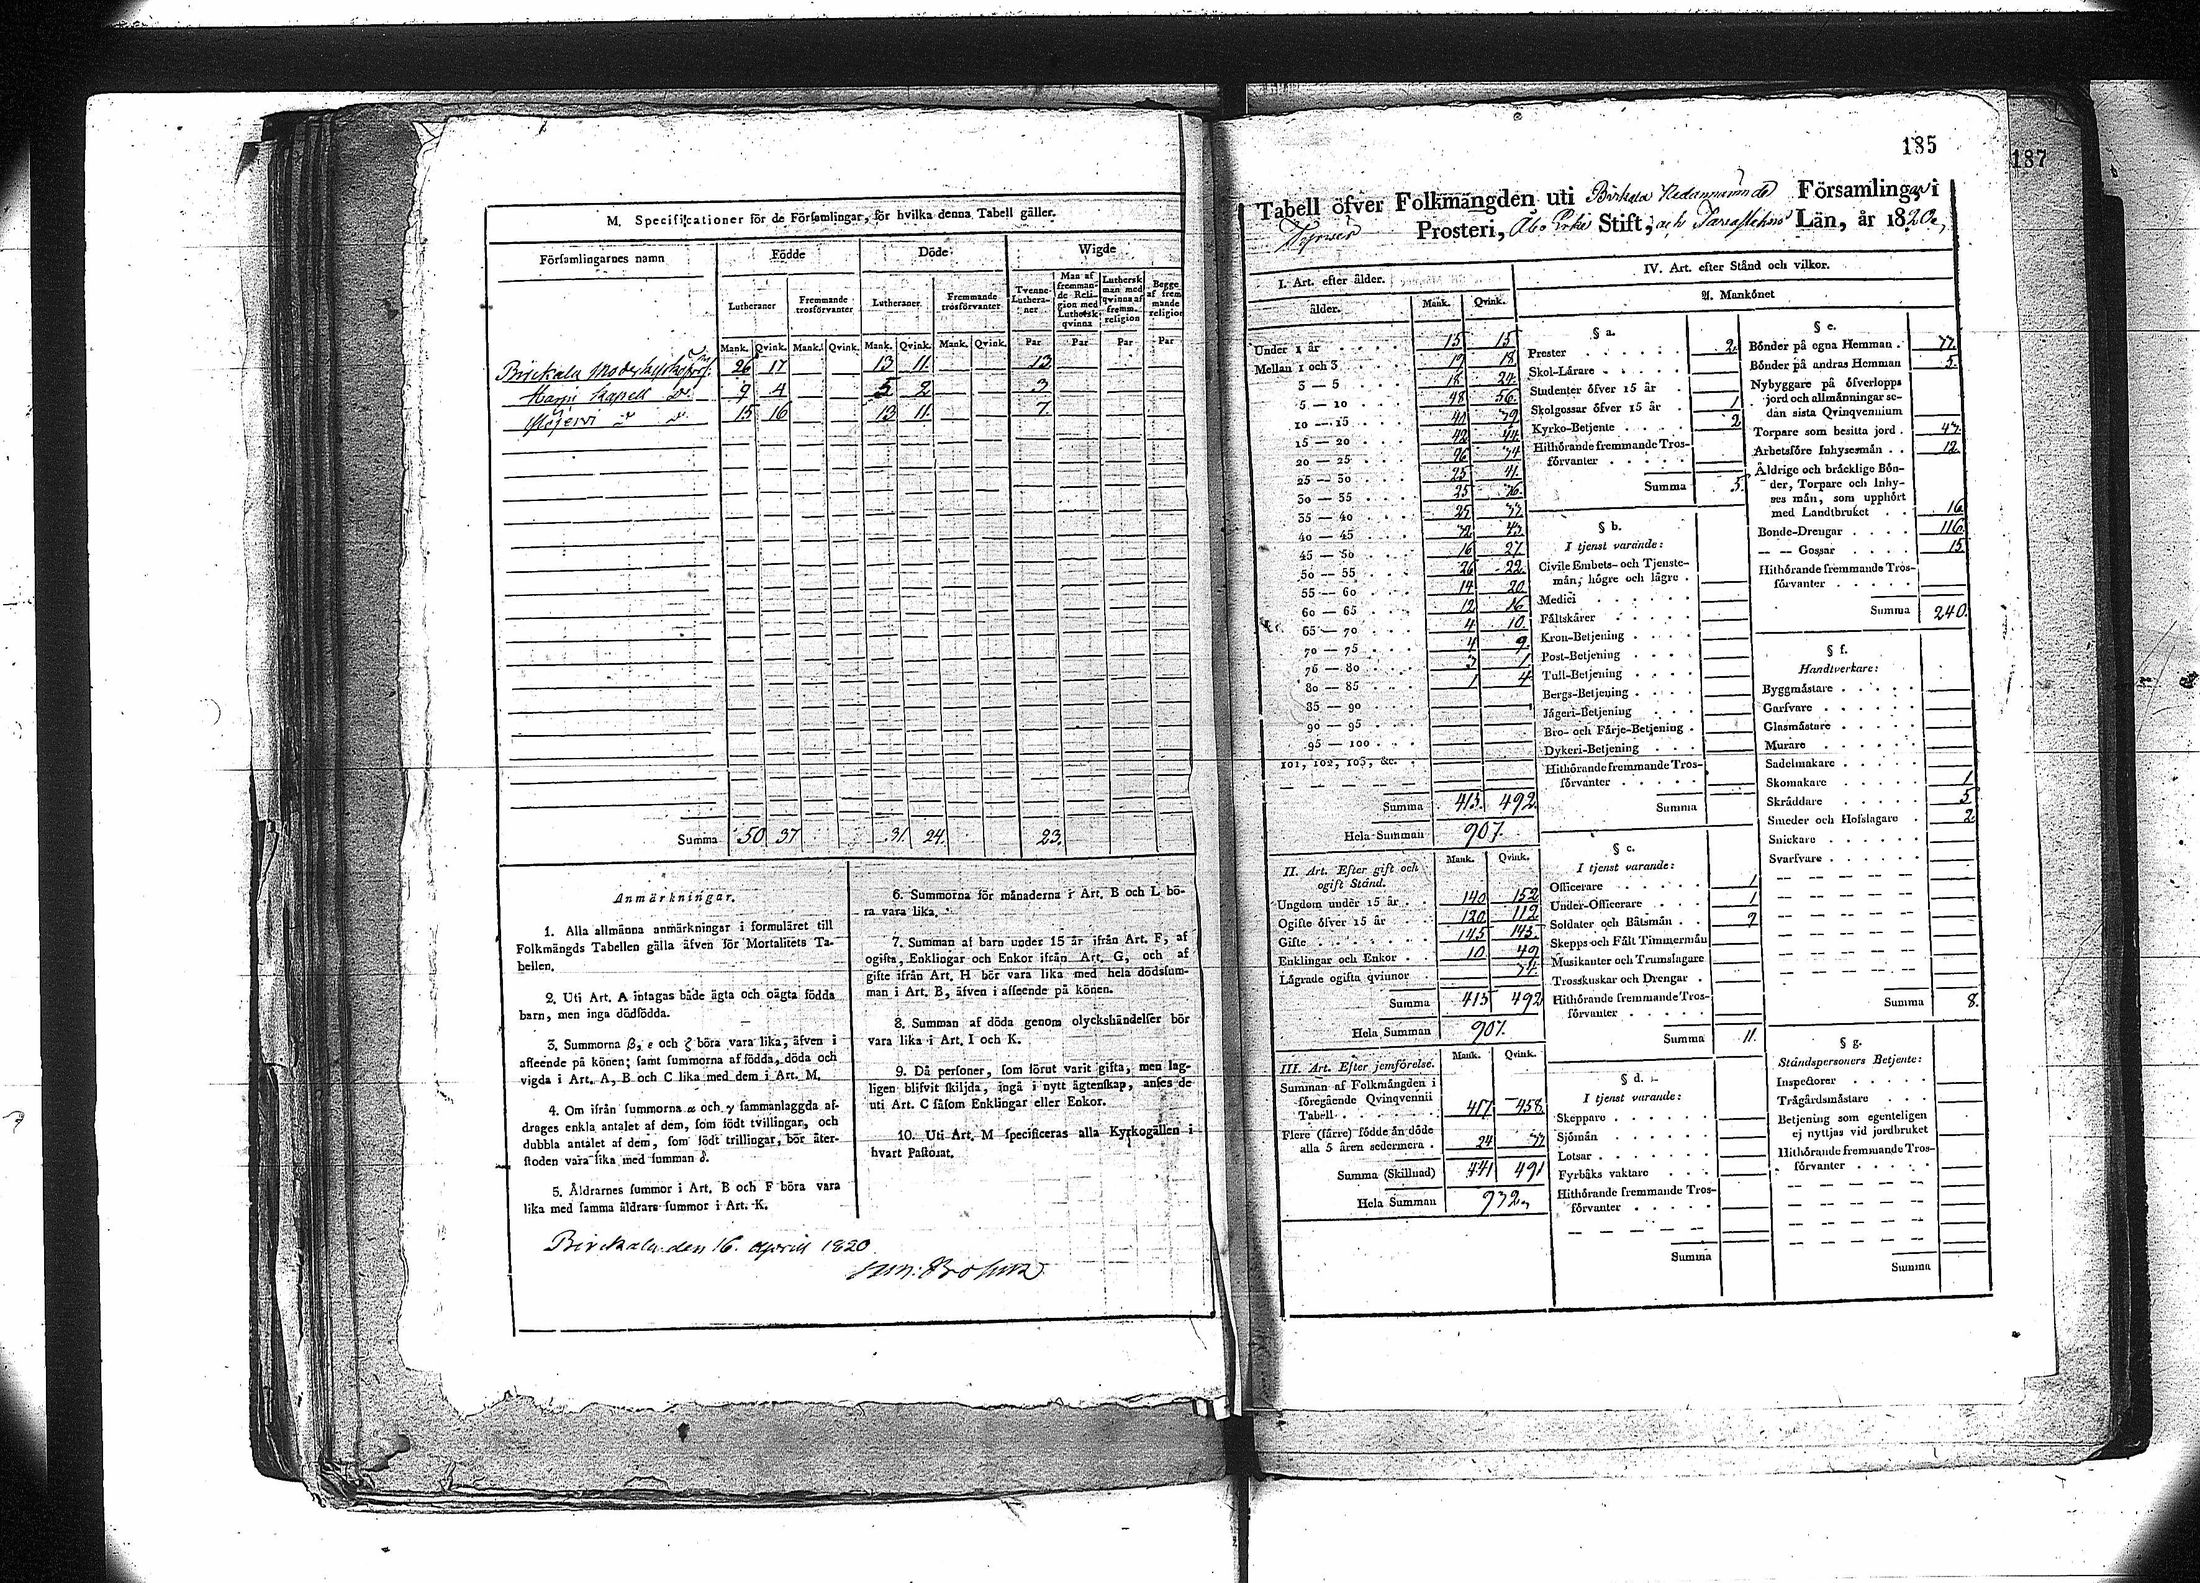 M. Specificationer för de Församlingar, för hvilka denna Tabell gäller.
Församlingarnes namn
Födde
Döde
Wigde
Lutheraner
Fremmande trosförvanter
Lutheraner
Fremmande trosförvanter
Tvenne Lutheraner
Man af fremmande Religion med Luthersk qvinna
Luthersk man med qvinna af fremm. religion
Begge af fremmande religion
Mank. Qvink. Mank. Qvink. Mank. Qvink. Mank. Qvink. Par Par Par Par
Birckala 26 17 13 11 13
Harju Kapell 9 4 5 2 3
15 16 13 11 7
Summa 50 37 31 24 23
Anmärkningar.
1. Alla allmänna anmärkningar i formuläret till
Folkmängds Tabellen gälla äfven för Mortalitets Ta-
bellen.
2. Uti Art. A intagas både ägta och oägta födda
barn, men inga dödfödda.
3. Summorna β, ε och ζ böra vara lika, äfven i
afseende på könen; samt summorna af födda, döda och
vigda i Art. A, B och C lika med dem i Art. M.
4. Om ifrån summorna α och γ sammanlaggda af-
drages enkla antalet af dem, som födt tvillingar, och
dubbla antalet af dem, som födt trillingar, bör åter-
stoden vara lika med summan δ.
5. Åldrarnes summor i Art. B och F böra vara
lika med samma åldrars summor i Art. K.
6. Summorna för månaderna i Art. B och L bö-
ra vara lika.
7. Summan af barn under 15 år ifrån Art. F, af
ogifta, Enklingar och Enkor ifrån Art. G, och af
gifte ifrån Art. H bör vara lika med hela dödssum-
man i Art. B, äfven i afseende på könen.
8. Summan af döda genom olyckshändelser bör
vara lika i Art. I och K.
9. Då personer, som förut varit gifta, men lag-
ligen blifvit skiljda, ingå i nytt ägtenskap, anses de
uti Art. C såsom Enklingar eller Enkor.
10. Uti Art. M specificeras alla Kyrkogällen i
hvart Pastorat.
Birckala den 16. April 1820
185
187
Tabell öfver Folkmängden uti Birkala Nedannämnde Församlingar i
Prosteri, Åbo Erke Stift, och Tavastehus Län, år 1820
I. Art. efter ålder.
ålder. Mank. Qvink.
Under 1 år 15 15
Mellan 1 och 3 19 18
3 — 5 18 24
5 — 10 48 56
10 — 15 40 39
15 — 20 42 44
20 — 25
25 — 30 25 41
30 — 35
35 — 40
40 — 45
45 — 50 16 27
50 — 55 26 22
55 — 60 14 20
60 — 65 12 16
65 — 70 4 10
70 — 75 4 9
76 — 80 3 1
80 — 85 1 4
85 — 90
90 — 95
95 — 100
101, 102, 103, &c.
Summa 415 492
Hela Summan 907.
II. Art. Efter gift och
ogift Stånd.
Mank. Qvink.
Ungdom under 15 år 140 152
Ogifte öfver 15 år 120 119
Gifte 145 145
Enklingar och Enkor 10 49
Lägrade ogifta qvinnor
Summa 415 492
Hela Summan 907.
III. Art. Efter jemförelse.
Mank. Qvink.
Summan af Folkmängden i
föregående Qvinqvennii
Tabell 417 458
Flere (färre) födde än döde
alla 5 åren sedermera 24
Summa (Skillnad) 441 491
Hela Summan 932
IV. Art. efter Stånd och vilkor.
A. Mankönet
§ a.
Prester 2
Skol-Lärare
Studenter öfver 15 år
Skolgossar öfver 15 år 1
Kyrko-Betjente 2
Hithörande fremmande Tros-
förvanter
Summa 5
§ b.
I tjenst varande:
Civile Embets- och Tjenste-
män, högre och lägre
Medici
Fältskärer
Kron-Betjening
Post-Betjening
Tull-Betjening
Bergs-Betjening
Jägeri-Betjening
Bro- och Färje-Betjening
Dykeri-Betjening
Hithörande fremmande Tros-
förvanter
Summa
§ c.
I tjenst varande:
Officerare 1
Under-Officerare 1
Soldater och Båtsmän 9
Skepps och Fält Timmermän
Musikanter och Trumslagare
Trosskuskar och Drengar
Hithörande fremmande Tros-
förvanter
Summa 11.
§ d.
I tjenst varande:
Skeppare
Sjömän
Lotsar
Fyrbåks vaktare
Hithörande fremmande Tros-
förvanter
Summa
§ e.
Bönder på egna Hemman
Bönder på andras Hemman 5
Nybyggare på öfverlopps
jord och allmänningar se-
dan sista Qvinqvennium
Torpare som besitta jord
Arbetsföre Inhysesmän 12
Åldrige och bräcklige Bön-
der, Torpare och Inhy-
ses män, som upphört
med Landtbruket 16
Bonde-Drengar 116
— — Gossar 15
Hithörande fremmande Tros-
förvanter
Summa 240.
§ f.
Handtverkare:
Byggmästare
Garfvare
Glasmästare
Murare
Sadelmakare
Skomakare 1
Skräddare 5
Smeder och Hofslagare 2
Snickare
Svarfvare
Summa 8.
§ g.
Ståndspersoners Betjente:
Inspector
Trägårdsmästare
Betjening som egenteligen
ej nyttjas vid jordbruket
Hithörande fremmande Tros-
förvanter
Summa